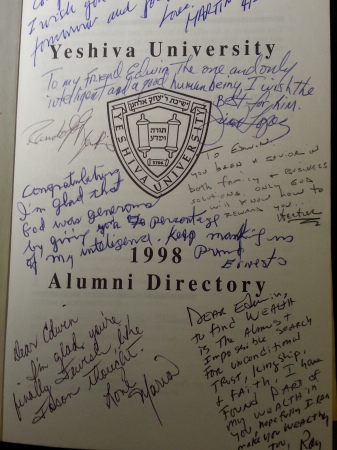 I wish you
tomorrow and
Love, MARTIN
Yeshiva University
To my friend Edwin, The one and only
intelligent and a good human being I wish the
Best for him.
ישיבת רבינו יצחק אלחנן
תורה
ומדע
YESHIVA UNIVERSITY
TO EDWIN
YOU BEEN A SAVIOR IN
both family & BUSINESS
SOLUTIONS. ONLY GOD
WILL KNOW how to
REWARD YOU.
Hector
Congratulations
I'm Glad that
God was generous
by giving you % percentage
of my inteligence. Keep making us
proud
Ernesto
1998
Alumni Directory
Dear Edwin
I'm glad you're
finally Jewish, like
Love
Maria
DEAR Edwin,
to find WEALTH
is the Almost
Impossible search
For unconditional
trust, Kinship,
& Faith, I have
Found PART of
my WEALTH in
you, hopefully I can
make you wealthy
too, Ray